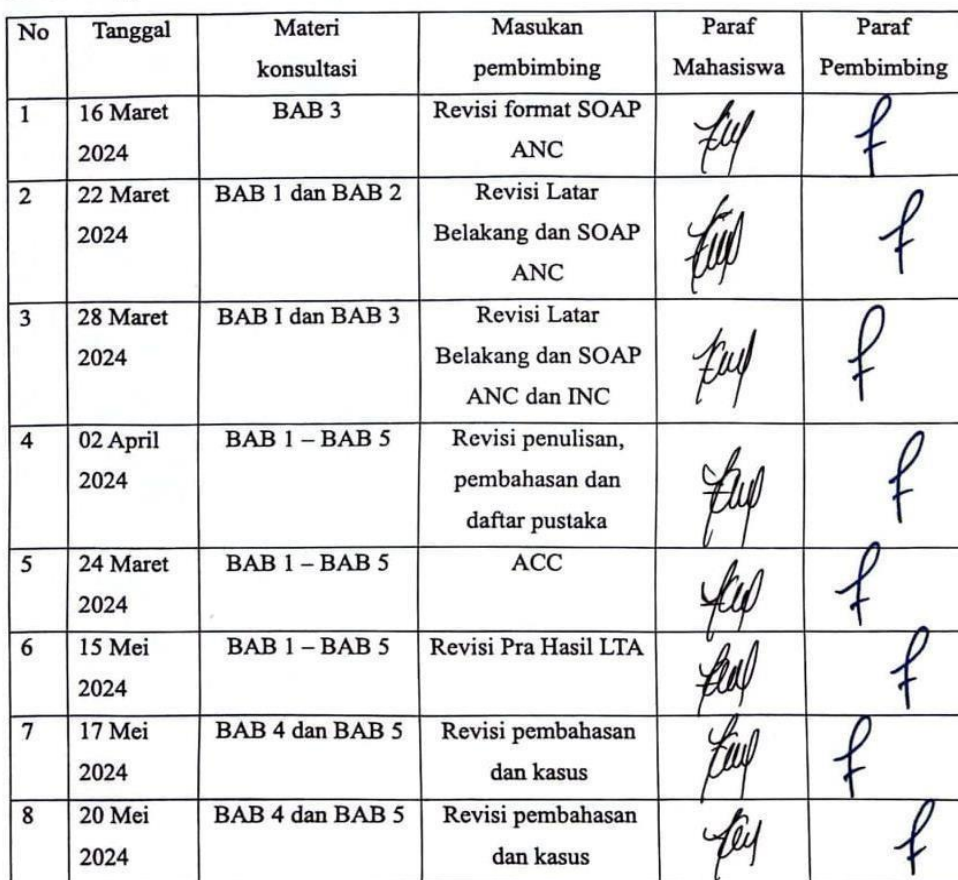 No Tanggal Materi konsultasi Masukan pembimbing Paraf Mahasiswa Paraf Pembimbing
1 16 Maret 2024 BAB 3 Revisi format SOAP ANC
2 22 Maret 2024 BAB 1 dan BAB 2 Revisi Latar Belakang dan SOAP ANC
3 28 Maret 2024 BAB I dan BAB 3 Revisi Latar Belakang dan SOAP ANC dan INC
4 02 April 2024 BAB 1 – BAB 5 Revisi penulisan, pembahasan dan daftar pustaka
5 24 Maret 2024 BAB 1 – BAB 5 ACC
6 15 Mei 2024 BAB 1 – BAB 5 Revisi Pra Hasil LTA
7 17 Mei 2024 BAB 4 dan BAB 5 Revisi pembahasan dan kasus
8 20 Mei 2024 BAB 4 dan BAB 5 Revisi pembahasan dan kasus